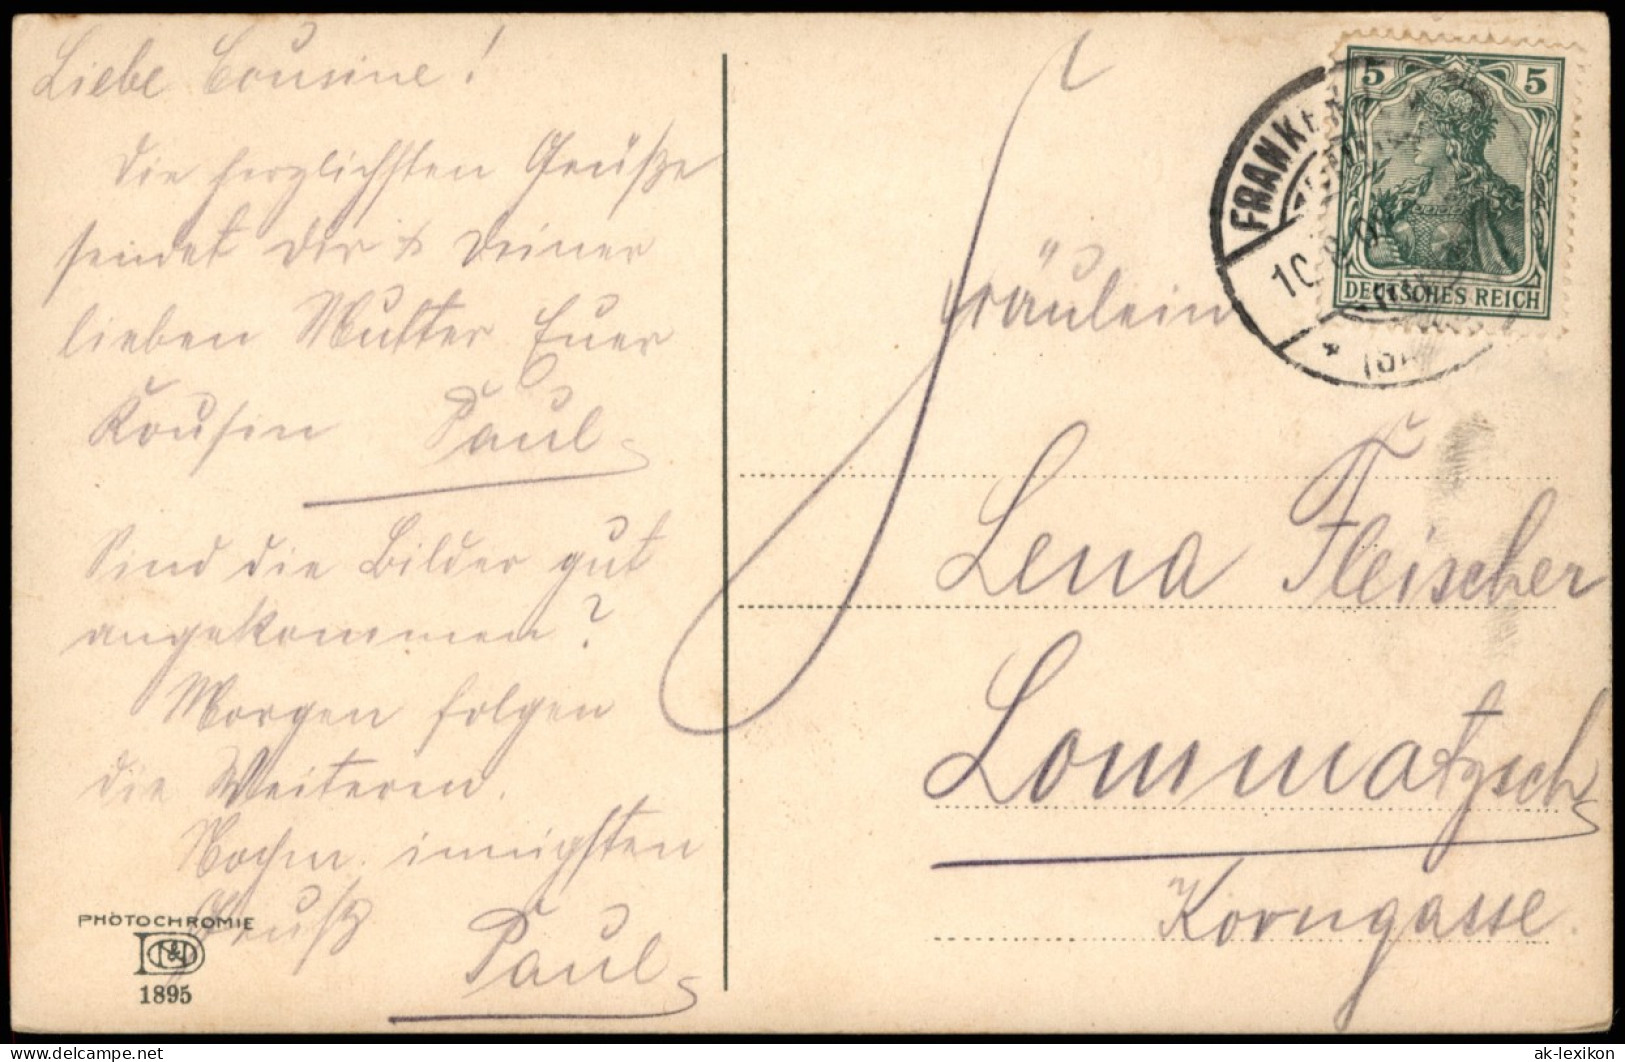 Liebe Cousine!
Die herzlichsten Grüße
sendet Dir & Deiner
lieben Mutter Euer
Kousin Paul
Sind die Bilder gut
angekommen?
Morgen folgen
die Weiteren.
Nochm. innigsten
Gruß Paul
PHOTOCHROMIE
N&D
1895
5 5
DEUTSCHES REICH
FRANKEN
10
Fräulein
Lena Fleischer
Lommatzsch
Korngasse.
ak-lexikon